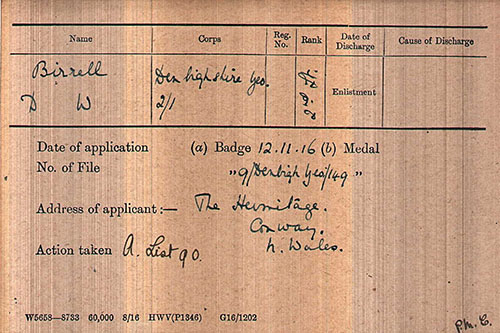 Name Corps Reg. No. Rank Date of Discharge Cause of Discharge
Birrell Denbighshire Yeo.
D W 2/1 Enlistment
Date of application (a) Badge 12.11.16 (b) Medal
No. of File "9/Denbigh Yeo/149"
Address of applicant:— The Hermitage.
Conway.
Action taken A. List 90. N. Wales.
W5658—8733 60,000 8/16 HWV(P1346) G16/1202
P.M.C.